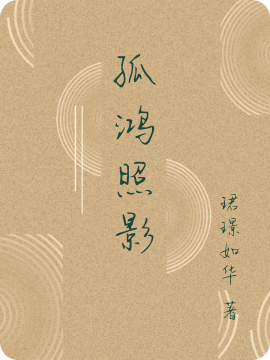 孤鸿照影
珺璟如华 著